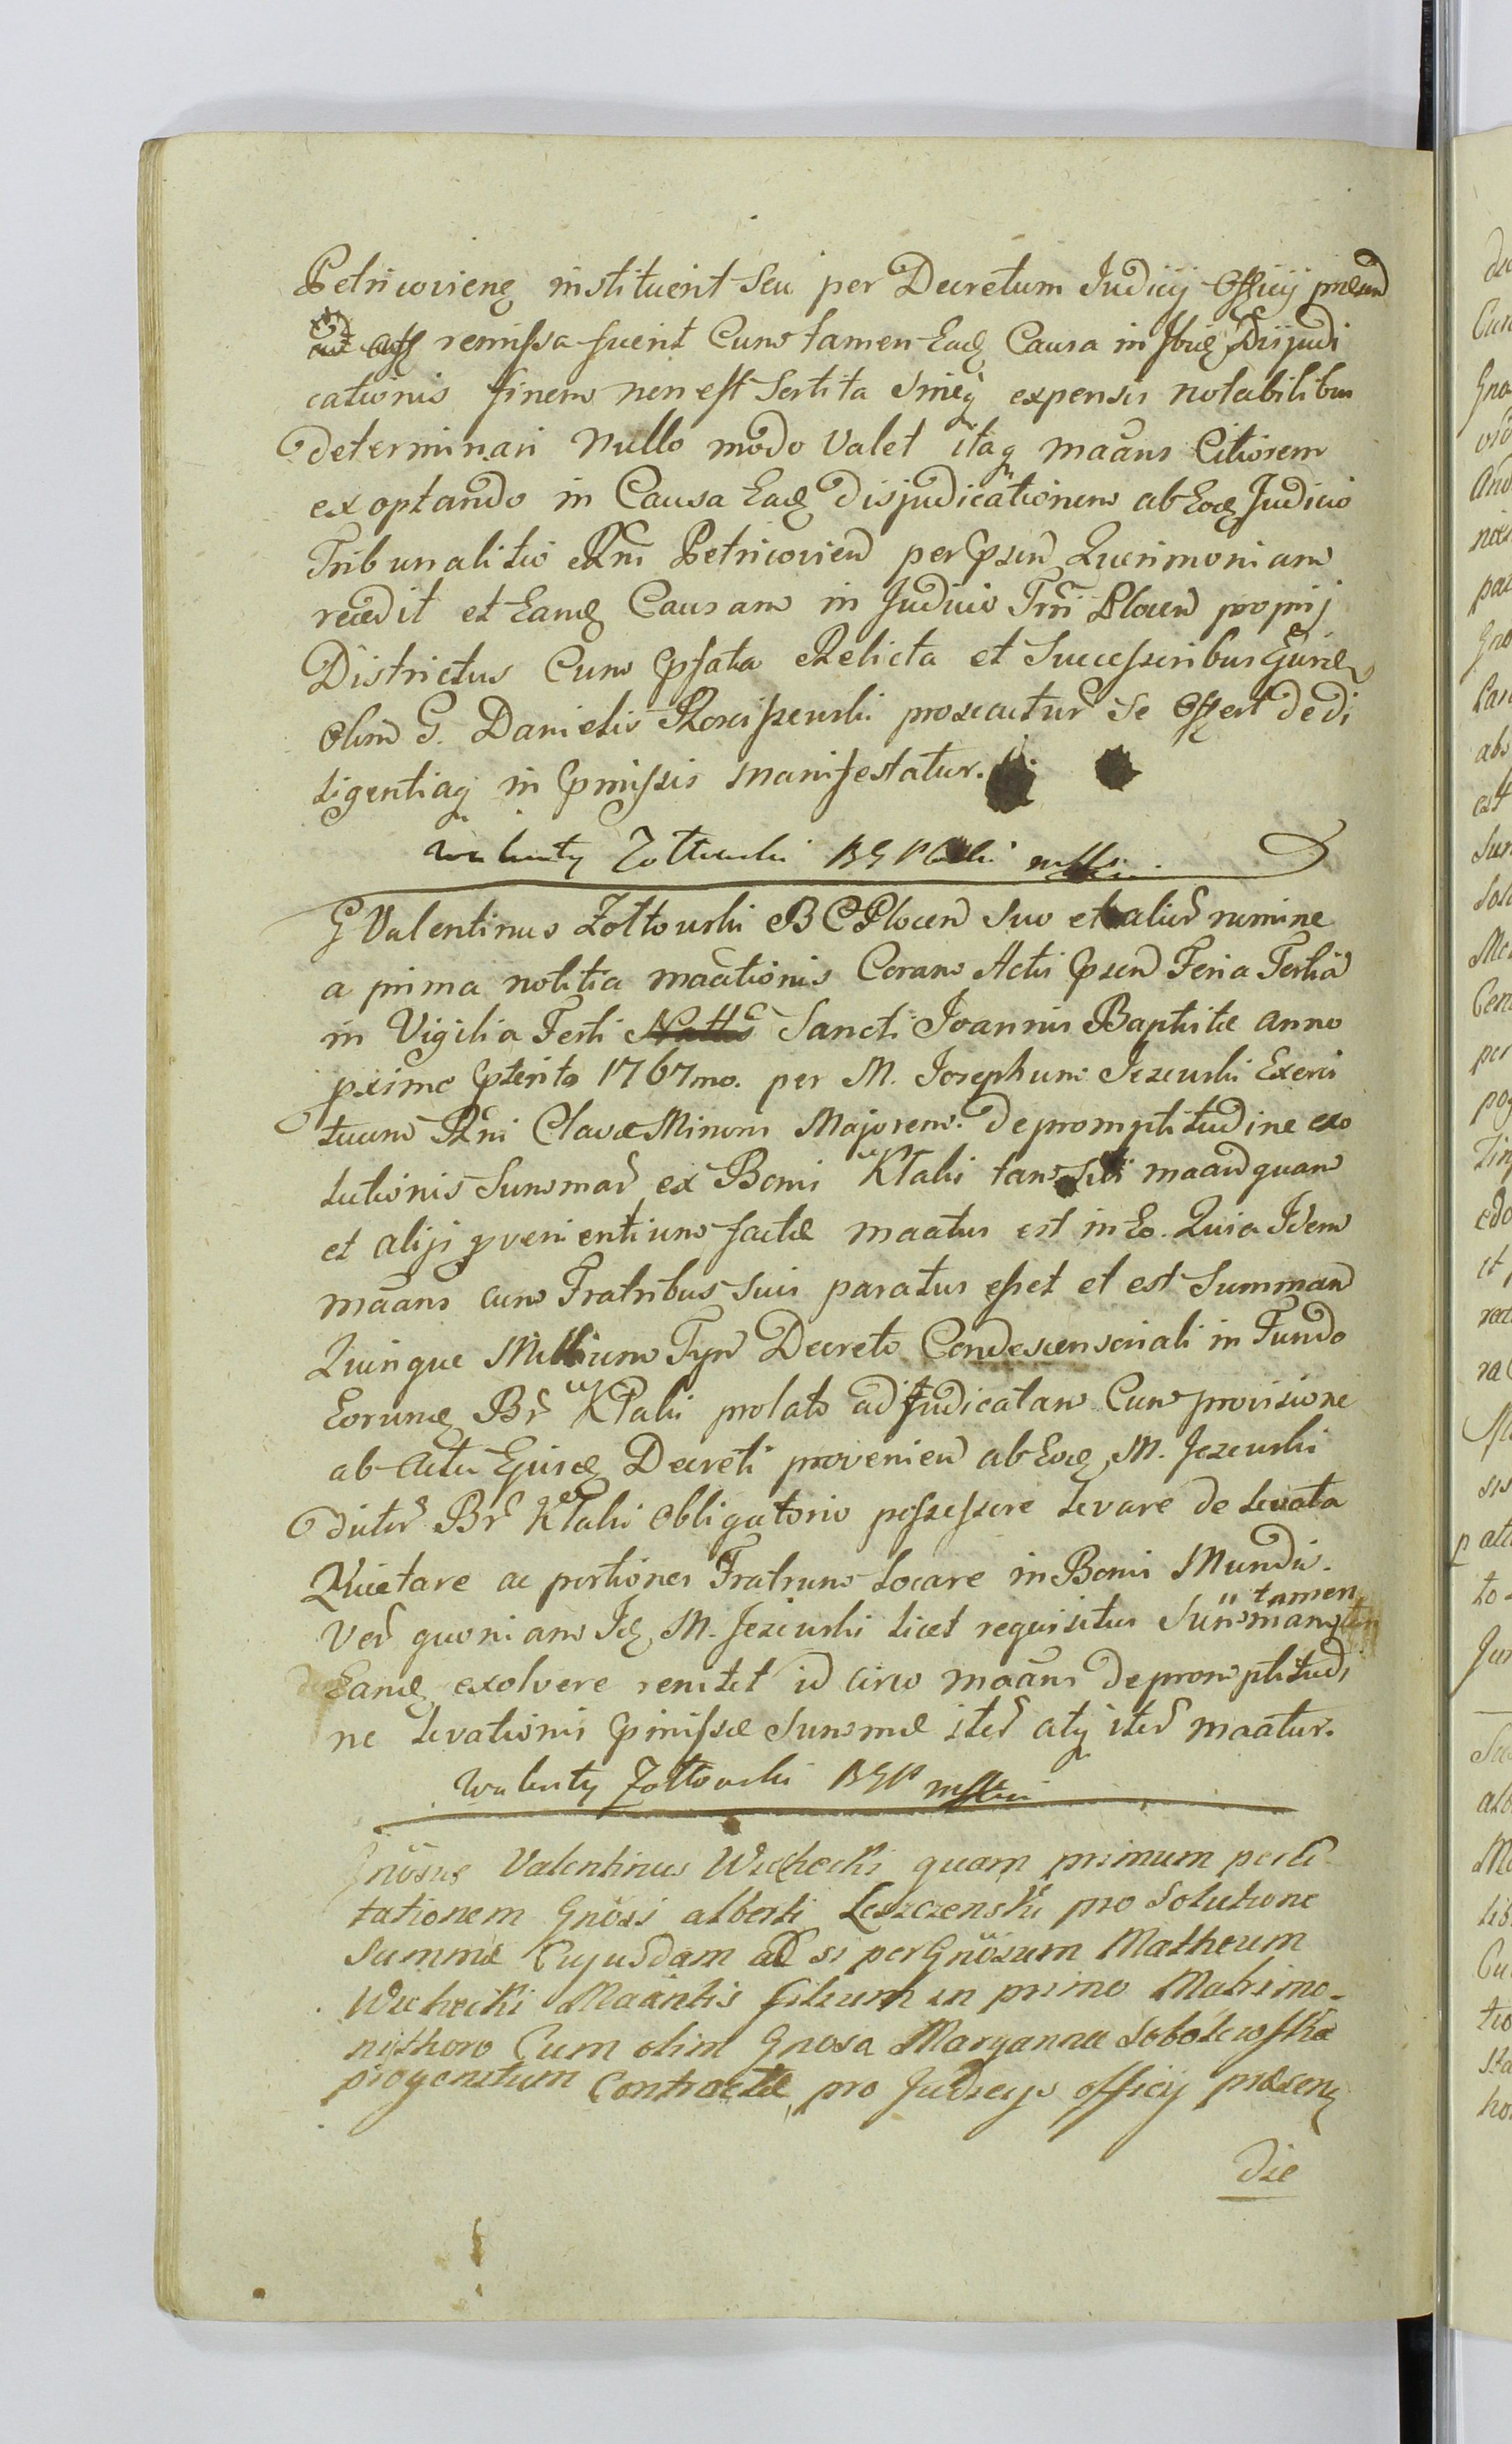 Petricovieñ instituerit seu per Decretum Judicij Officij præsend
remissa fuerit Cum tamen Ead Causa in Ibid Dijudi
cationis finem non est sortita sineq expensis notabilibus
determinari nullo modo valet itaq maans Citiorem
exoptando in Causa Ead disjudicationem ab Eod Judicio
Tribunalitio Rni Petricovien per psen Querimoniam
recedit et Eand Causam in Judicio Trni Plocen proprij
Districtus Cum pfata Relicta et Successoribus Ejusd
olim G. Danielis prosecutur se offert de di
ligentiaq in pmissis manifestatur.
Walenty Zołtowski BG mp
G Valentinus Zołtowski B C Plocen suo et alior nomine
a prima notitia maationis Coram Actis psen Feria Tertia
in Vigilia Festi Sancti Joannis Baptistæ anno
pximo pterito 1767mo. per M. Josephum Jezewski Exerci
tuum Rni Clavæ Minoris Majorem. de promptitudine exo
lutionis Summar ex Bonis Ktalis tam sibi maan quam
et alijs pvenientium factæ maatus est in Eo. Quia Idem
maans cum Fratribus suis paratus esset et est Summam
Quinque Millium Fpn Decreto Condescensoriali in Fundo
Eorund Br Ktalis prolato adjudicatam Cum provisione
ab Actu Ejusd Decreti provenien ab Eod M. Jezewski
dictor Br Ktalis obligatorio possessore levare de levata
Quietare ac portiones Fratrum locare in Bonis Mundis.
Ver quoniam Id M. Jezewski licet requisitus Summam tamen
Eand exolvere renitet id circo maans de promptitudi
ne levationis pmissæ Summæ iter atq iter maatur.
Walenty Zołtowski BGP mp
Gnosus Valentinus Wichecki quam primum per Ci
tationem Gnosi alberti Leszczenski pro Solutione
Summæ Cujusdam ad se per Gnosum Matheum
Wichecki Maantis filium in primo Matrimo-
nij thoro Cum olim Gnosa Maryanna Sobolewska
progenitum Contractæ, pro Judicijs officij præsen
die